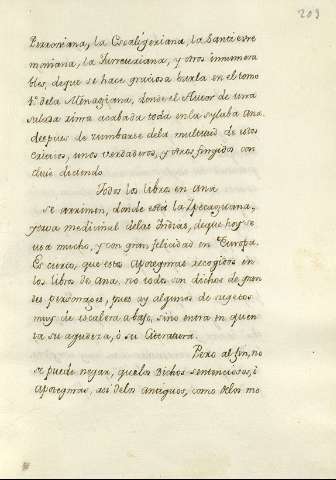 203
Perroniana, la Scaligeriana, la Santi evre
moniana, la Furretiana, y otros innumera
bles, de que se hace graciosa burla en el tomo
4º de la Menagiana, donde el Autor de una
salada rima acabada toda en la sylaba Ana
despues de zumbarse de la multitud de estos
escritos, unos verdaderos, y otros fingidos con
cluie diciendo
Todos los libros en ana
se arrimen, donde está la Ipecaquana,
yerva medicinal de las Indias, de que hoy se
usa mucho, y con gran felicidad en Europa.
Es cierto, que estos Apotegmas recogidos en
los libros de Ana. no todos son dichos de gran
des personages, pues ay algunos de sugetos
muy de escalera abajo, sino entra en quen
ta su agudeza, ó su Literatura.
Pero al fin, no
se puede negar, que los Dichos sentenciosos, ó
Apotegmas, asi de los antiguos, como de los mo